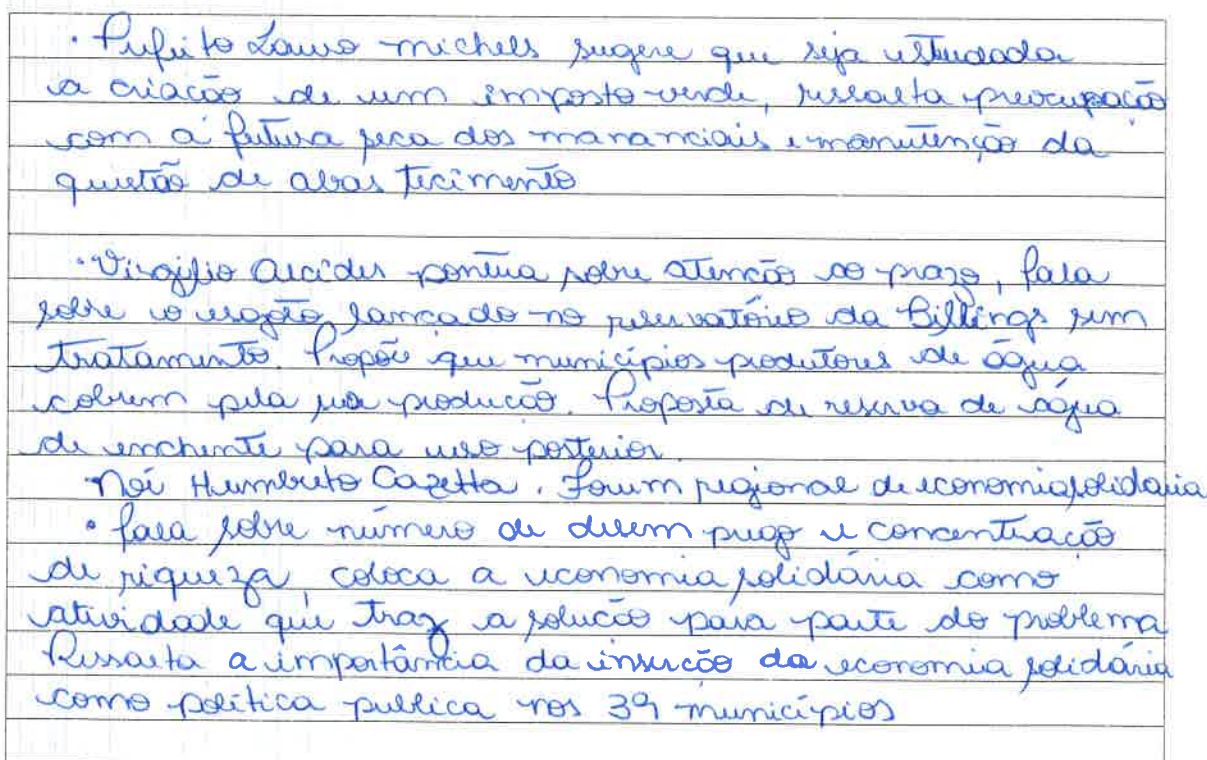 · Prefeito Lauro michels sugere que seja estudada
a criação de um imposto verde, ressalta preocupação
com a futura seca dos mananciais e manutenção da
questão de abastecimento
· Virgílio Alcides pontua sobre atenção ao prazo, fala
sobre o esgoto lançado no reservatório da Billings sem
tratamento. Propõe que municípios produtores de água
cobrem pela sua produção. Proposta de reserva de água
de enchente para uso posterior.
· Humberto Cazetta. Forum regional de economia solidaria
· fala sobre número de desemprego e concentração
de riqueza, coloca a economia solidária como
atividade que traz a solução para parte do problema
Ressalta a importância da inserção da economia solidária
como política publica nos 39 municípios